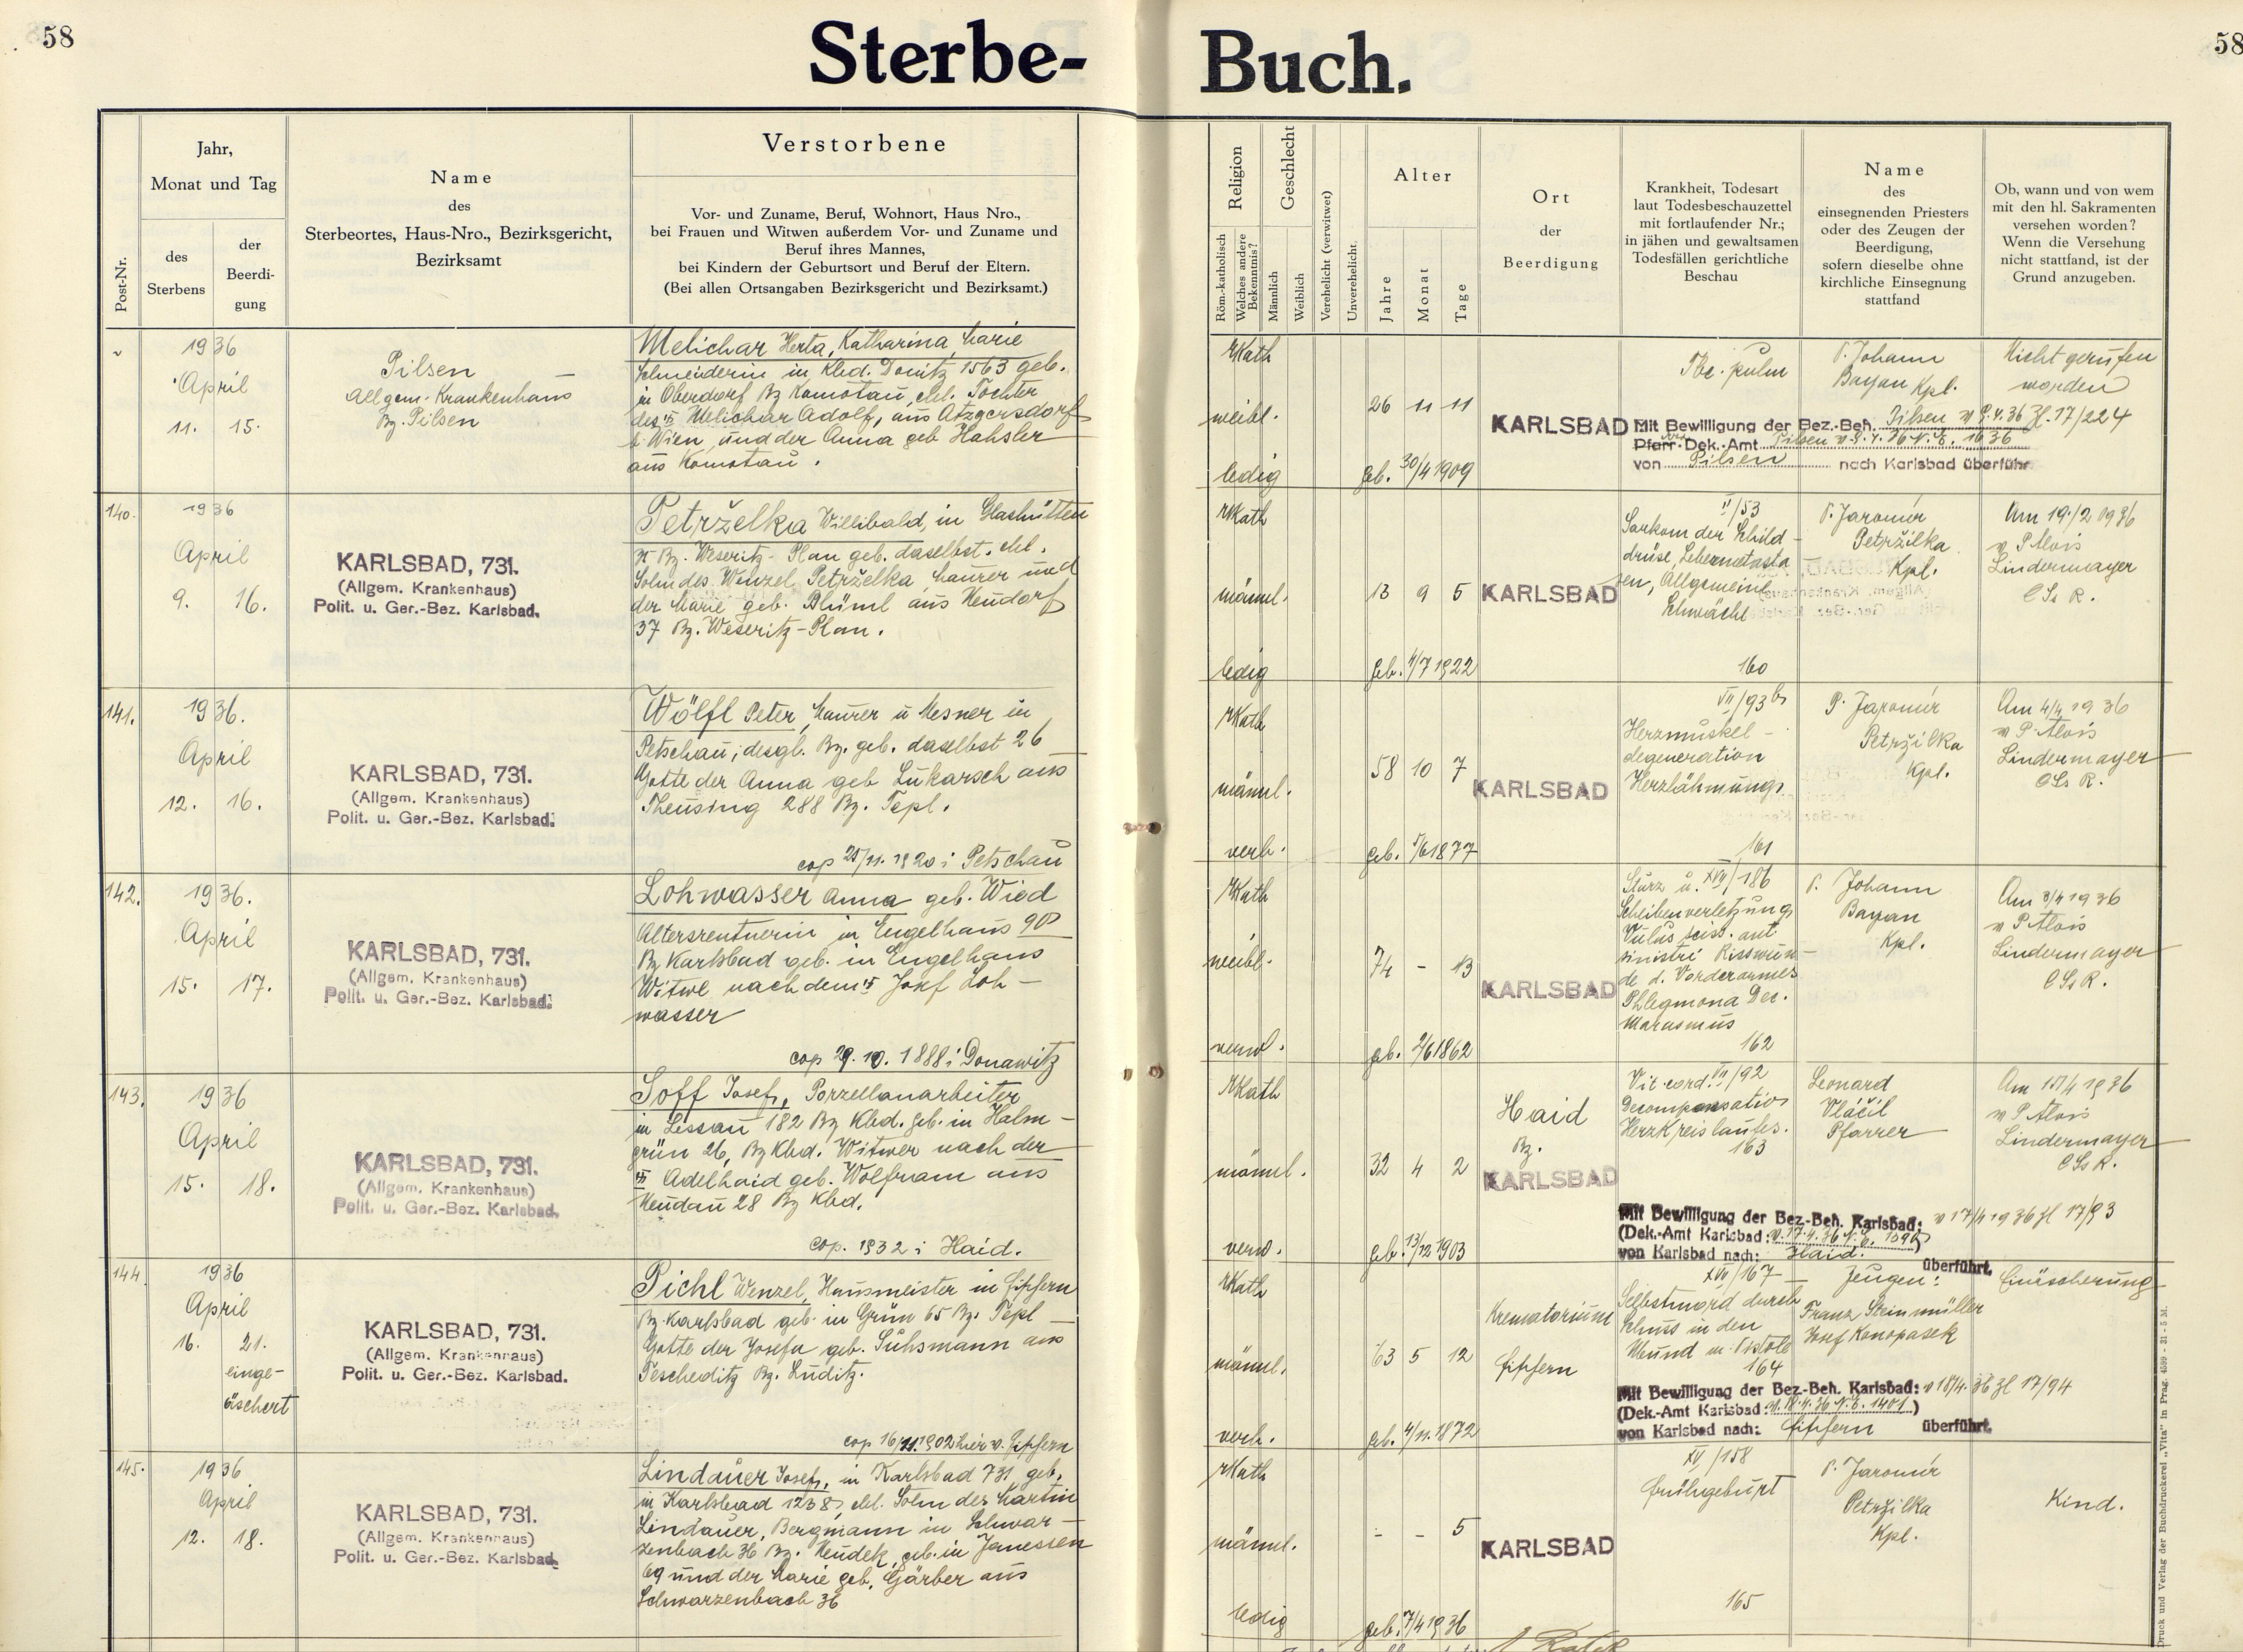 58
Sterbe-
Buch.
58
Post-Nr.
Jahr,
Monat und Tag
des
Sterbens
der
Beerdi-
gung
Name
des
Sterbeortes, Haus-Nro., Bezirksgericht,
Bezirksamt
Verstorbene
Vor- und Zuname, Beruf, Wohnort, Haus Nro.,
bei Frauen und Witwen außerdem Vor- und Zuname und
Beruf ihres Mannes,
bei Kindern der Geburtsort und Beruf der Eltern.
(Bei allen Ortsangaben Bezirksgericht und Bezirksamt.)
Religion
Röm.-katholisch
Welches andere
Bekenntnis?
Geschlecht
Männlich
Weiblich
Verehelicht (verwitwet)
Unverehelicht.
Alter
Jahre
Monat
Tage
Ort
der
Beerdigung
Krankheit, Todesart
laut Todesbeschauzettel
mit fortlaufender Nr.;
in jähen und gewaltsamen
Todesfällen gerichtliche
Beschau
Name
des
einsegnenden Priesters
oder des Zeugen der
Beerdigung,
sofern dieselbe ohne
kirchliche Einsegnung
stattfand
Ob, wann und von wem
mit den hl. Sakramenten
versehen worden?
Wenn die Versehung
nicht stattfand, ist der
Grund anzugeben.
1936
April
11. 15.
Pilsen
Allgem. Krankenhaus
Bz. Pilsen
Melichar Herta, Katharina, Marie
Schneiderin in Kbd. Donitz 1563 geb.
in Oberdorf Bz Komotau, ehl. Tochter
des Melichar Adolf, aus Atzgersdorf
b. Wien, und der Anna geb Hahsler
aus Komotau.
rKath
weibl.
ledig
26 11 11
geb. 30/4 1909
KARLSBAD
Tbc. pulm
P. Johann
Bayan Kpl.
Nicht gerufen
worden
Mit Bewilligung der Bez.-Beh. Pilsen v 9.4.36 Zl. 17/224
Pfarr-Dek.-Amt Pilsen
von Pilsen nach Karlsbad überführt
140.
1936
April
9. 16.
KARLSBAD, 731.
(Allgem. Krankenhaus)
Polit. u. Ger.-Bez. Karlsbad.
Petrželka Willibald, in Glashütten
Bz. Weseritz-Plan geb. daselbst. ehl.
Sohn des Wenzel Petrželka, Maurer und
der Marie geb. Blüml aus Neudorf
37 Bz. Weseritz-Plan.
rKath
männl.
ledig
13 9 5
geb. 4/7 1922
KARLSBAD
II/53
Sarkom der Schild-
drüse, Lebermetasta
sen, Allgemeine
Schwäche
160
P. Jaromír
Petržilka
Kpl.
Am 19/2 1936
v P Alois
Lindermayer
CSsR.
141.
1936.
April
12. 16.
KARLSBAD, 731.
(Allgem. Krankenhaus)
Polit. u. Ger.-Bez. Karlsbad.
Wölfl Peter, Maurer u Mesner in
Petschau, desgl. Bz. geb. daselbst 26
Gatte der Anna geb Lukarsch aus
Theusing 288 Bz. Tepl.
cop 25/11. 1920 i Petschau
rKath
männl.
verh.
58 10 7
geb. 5/6 1877
KARLSBAD
VII/93 b
Herzmuskel-
degeneration
Herzlähmung
161
P. Jaromír
Petržilka
Kpl.
Am 4/4 1936
v P. Alois
Lindermayer
CSsR.
142.
1936.
April
15. 17.
KARLSBAD, 731.
(Allgem. Krankenhaus)
Polit. u. Ger.-Bez. Karlsbad.
Lohwasser Anna geb. Wied
Altersrentnerin in Engelhaus 90
Bz Karlsbad geb. in Engelhaus
Witwe nach dem Josef Loh-
wasser
cop 29. 10. 1888 i Donawitz
rKath
weibl.
verw.
74 - 13
geb. 2/6 1862
KARLSBAD
Sturz u. XVII/186
Scheibenverletzung
Vulus sciss. ant.
sinistri Risswun-
de d. Vorderarmes
Phlegmona Dec.
Marasmus
162
P. Johann
Bayan
Kpl.
Am 3/4 1936
v P Alois
Lindermayer
CSsR.
143.
1936
April
15. 18.
KARLSBAD, 731.
(Allgem. Krankenhaus)
Polit. u. Ger.-Bez. Karlsbad.
Soff Josef, Porzellanarbeiter
in Lessau 182 Bz Kbd. geb. in Halm-
grün 26, Bz Kbd. Witwer nach der
Adelhaid geb. Wolfram aus
Neudau 28 Bz Kbd.
cop. 1932 i Haid.
rKath
männl.
verw.
32 4 2
geb. 13/12 1903
Haid
Bz.
KARLSBAD
Vit. cord. VII/92
Decompensatio
Herzkreislaufes.
163
Leonard
Vláčil
Pfarrer
Am 15/4 1936
v P Alois
Lindermayer
CSsR.
Mit Bewilligung der Bez.-Beh. Karlsbad: v 17/4 1936 Zl 17/93
(Dek.-Amt Karlsbad: v. 17.4.36 N.E. 1390)
von Karlsbad nach: Haid. überführt.
144
1936
April
16. 21.
einge-
äschert
KARLSBAD, 731.
(Allgem. Krankenhaus)
Polit. u. Ger.-Bez. Karlsbad.
Pichl Wenzel, Hausmeister in Fischern
Bz. Karlsbad geb. in Grün 65 Bz. Tepl
Gatte der Josefa geb. Suhsmann aus
Tescheditz Bz. Luditz.
cop 16/11. 1902 hier v. Fischern
rKath
männl.
verh.
63 5 12
geb. 4/11. 1872
Krematorium
Fischern
XVII/167
Selbstmord durch
Schuss in den
Mund m. Pistole
164
Zeugen:
Franz Steinmüller
Josef Konopasek
Einäscherung
Mit Bewilligung der Bez.-Beh. Karlsbad: v 18/4. 36 Zl 17/94
(Dek.-Amt Karlsbad: v. 18.4.36 N.E. 1401.)
von Karlsbad nach: Fischern überführt.
145.
1936
April
12. 18.
KARLSBAD, 731.
(Allgem. Krankenhaus)
Polit. u. Ger.-Bez. Karlsbad.
Lindauer Josef, in Karlsbad 731 geb.
in Karlsbad 1238, ehl. Sohn des Martin
Lindauer, Bergmann in Schwar-
zenbach 36 Bz. Neudek, geb. in Janessen
69 und der Marie geb. Gärber aus
Schwarzenbach 36
rKath
männl.
ledig
- - 5
geb. 7/4 1936
KARLSBAD
XV/158
Frühgeburt
165
P. Jaromír
Petržilka
Kpl.
Kind.
Druck und Verlag der Buchdruckerei „Vita" in Prag. 4599 - 31 - 5 M.